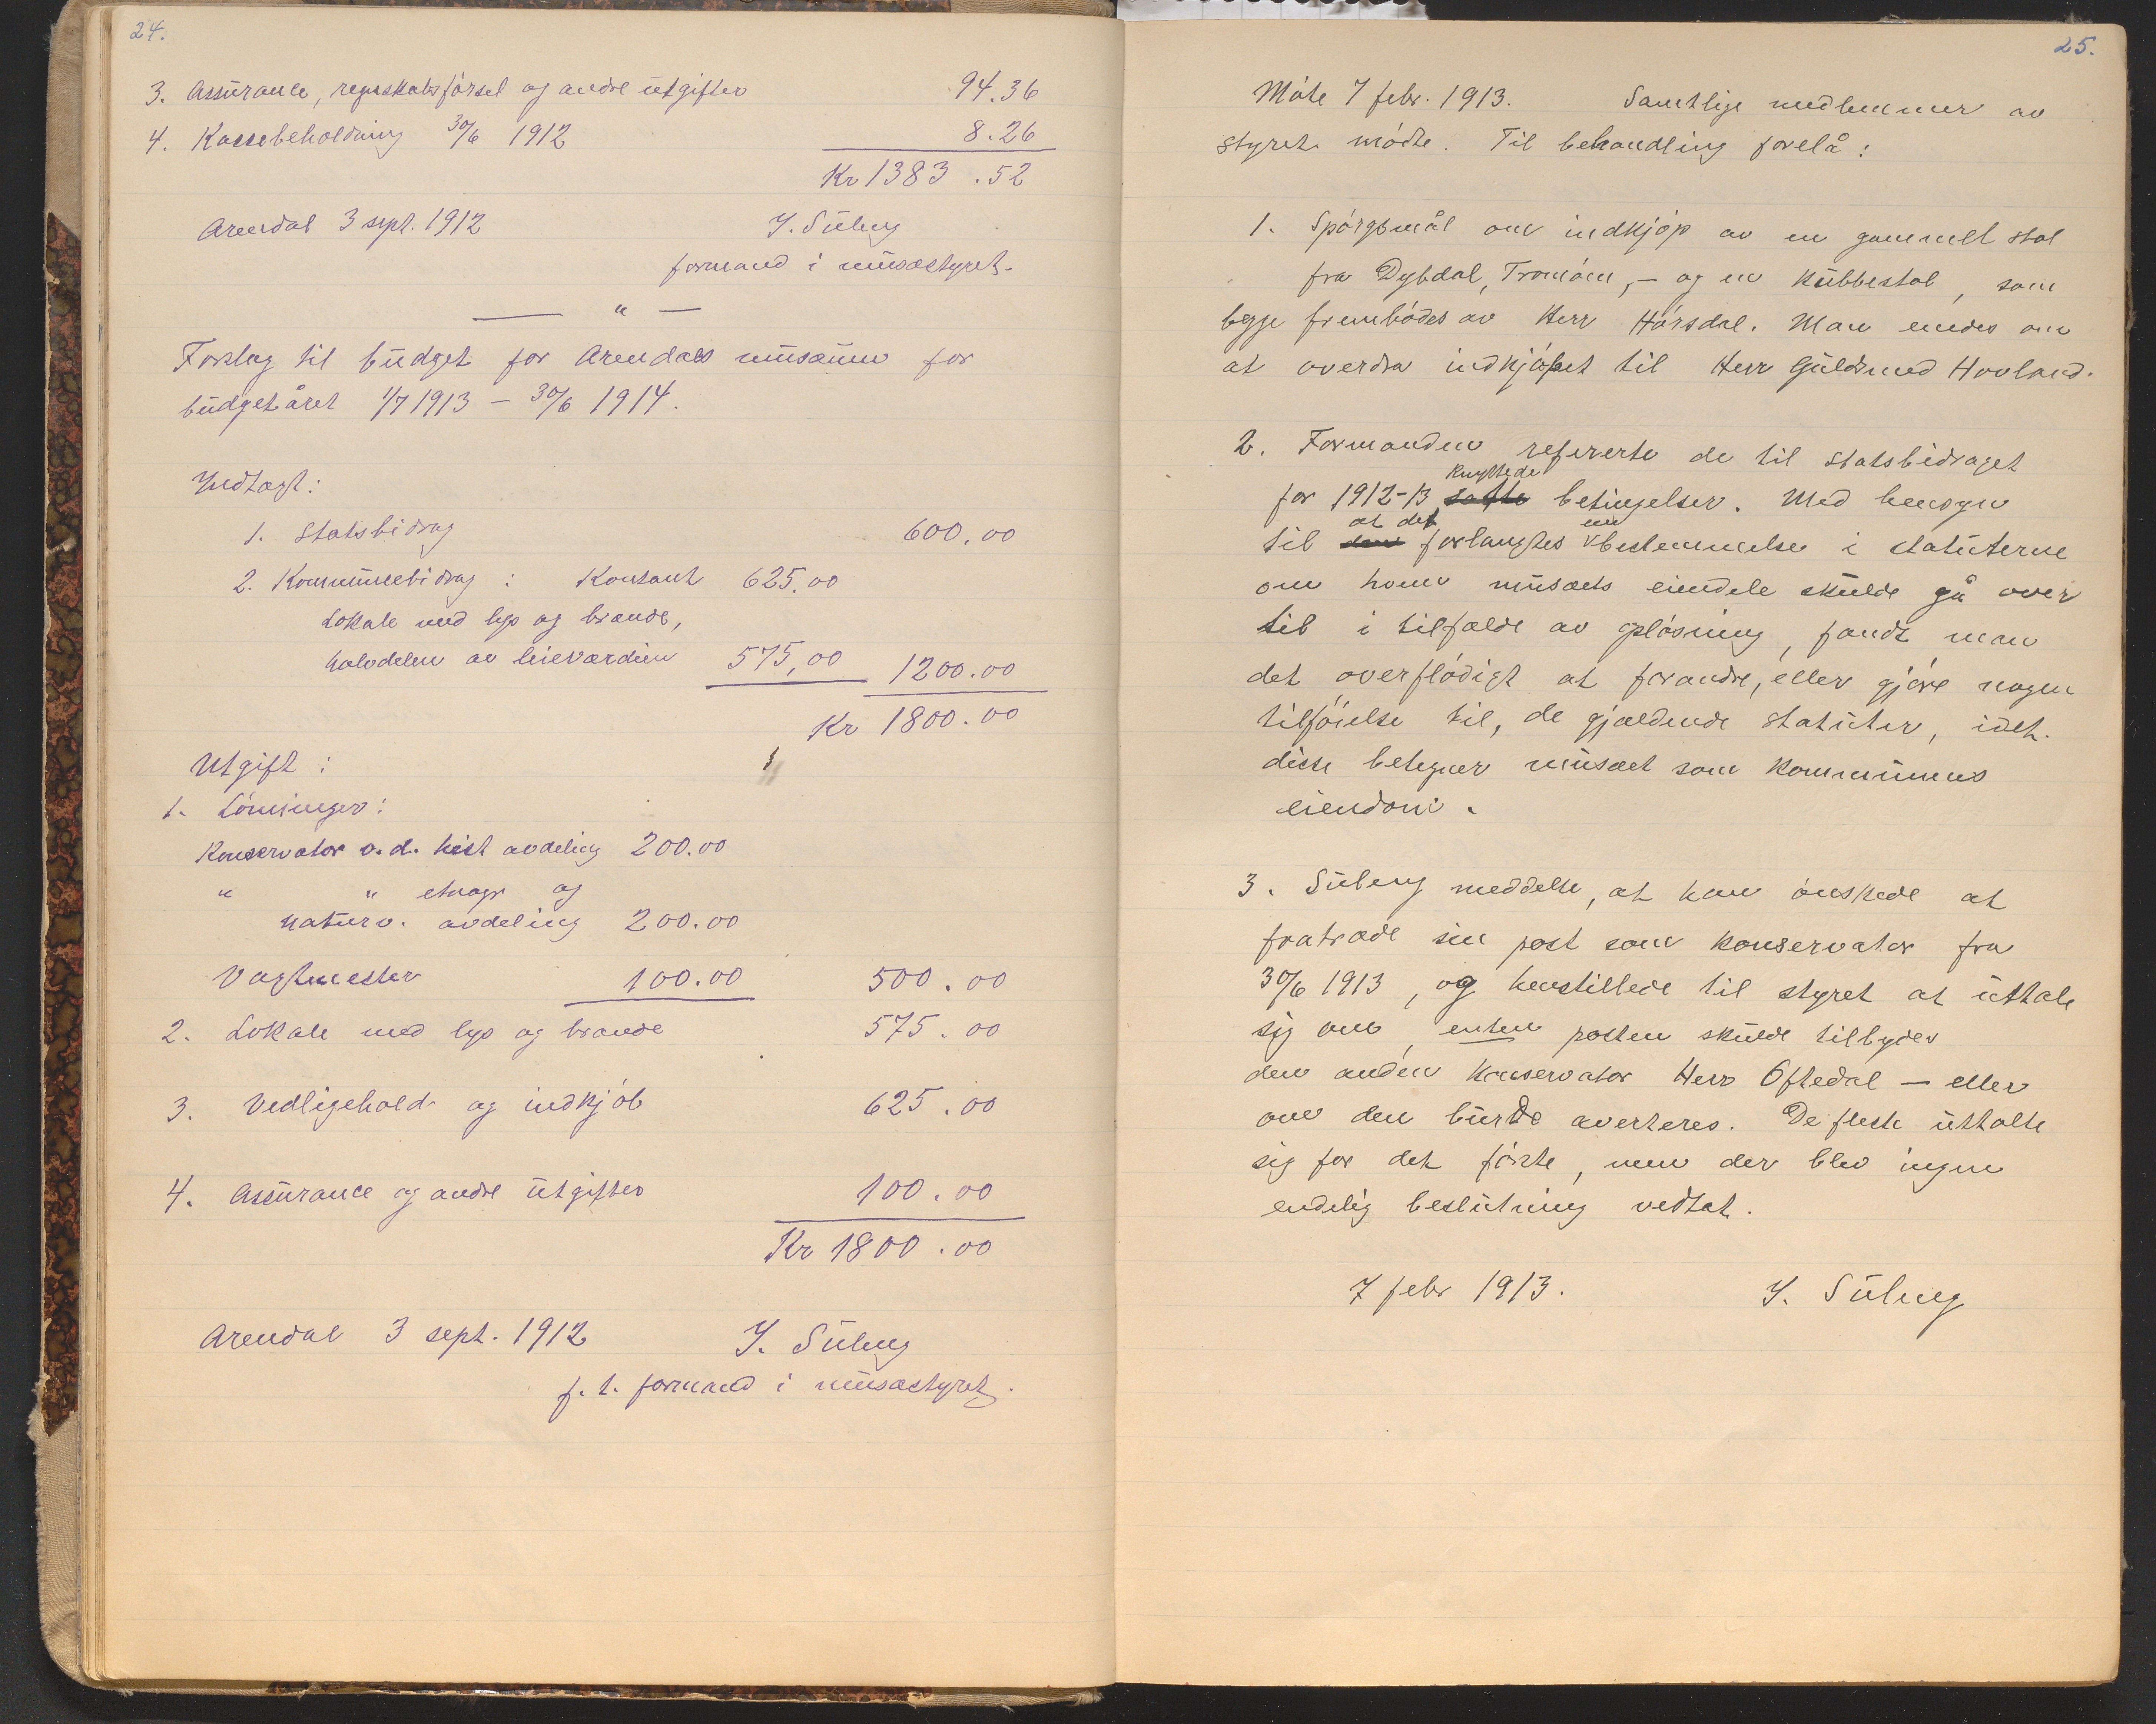 24.
3. Assurance, regnskabsførsel og andre utgifter 94.36
4. Kassebeholdning 30/6 1912 8.26
Kr 1383.52
Arendal 3 sept. 1912 J. Süberg
formand i musæstyret.
— " —
Forslag til budget for Arendals musæum for
budgetåret 1/7 1913 – 30/6 1914.
Indtægt:
1. Statsbidrag 600.00
2. Kommunebidrag: Kontant 625.00
Lokale med lys og brænde,
halvdelen av leieværdien 575,00 1200.00
Kr 1800.00
Utgift:
1. Lønninger:
Konservator v. d. hist avdeling 200.00
" " etnogr og
naturv. avdeling 200.00
Vagtmester 100.00 500.00
2. Lokale med lys og brænde 575.00
3. Vedligehold og indkjøb 625.00
4. Assurance og andre utgifter 100.00
Kr 1800.00
Arendal 3 sept. 1912 J. Süberg
f. t. formand i musæstyret.
25.
Møte 7 febr. 1913. Samtlige medlemmer av
styret mødte. Til behandling forelå:
1. Spørgsmål om indkjøp av en gammel stol
fra Dybdal, Tromøen, – og en kubbestol, som
begge frembødes av Herr Hørsdal. Man enedes om
at overdra indkjøpet til Herr Guldsmed Hovland.
2. Formanden refererte de til statsbidraget
knyttede
for 1912–13 satte betingelser. Med hensyn
at det en
til den forlangtes bestemmelse i statuterne
om hvem musæets eiendele skulde gå over
til i tilfælde av opløsning, fandt man
det overflødigt at forandre, eller gjøre nogen
tilføielse til, de gjældende statuter, idet
disse betegner musæet som kommunens
eiendom.
3. Süberg meddelte, at han ønskede at
fratræde sin post som konservator fra
30/6 1913, og henstillede til styret at uttale
sig om, enten posten skulde tilbydes
den anden konservator Herr Oftedal – eller
om den burde averteres. De fleste uttalte
sig for det første, men der blev ingen
endelig beslutning vedtat.
7 febr 1913. J. Süberg